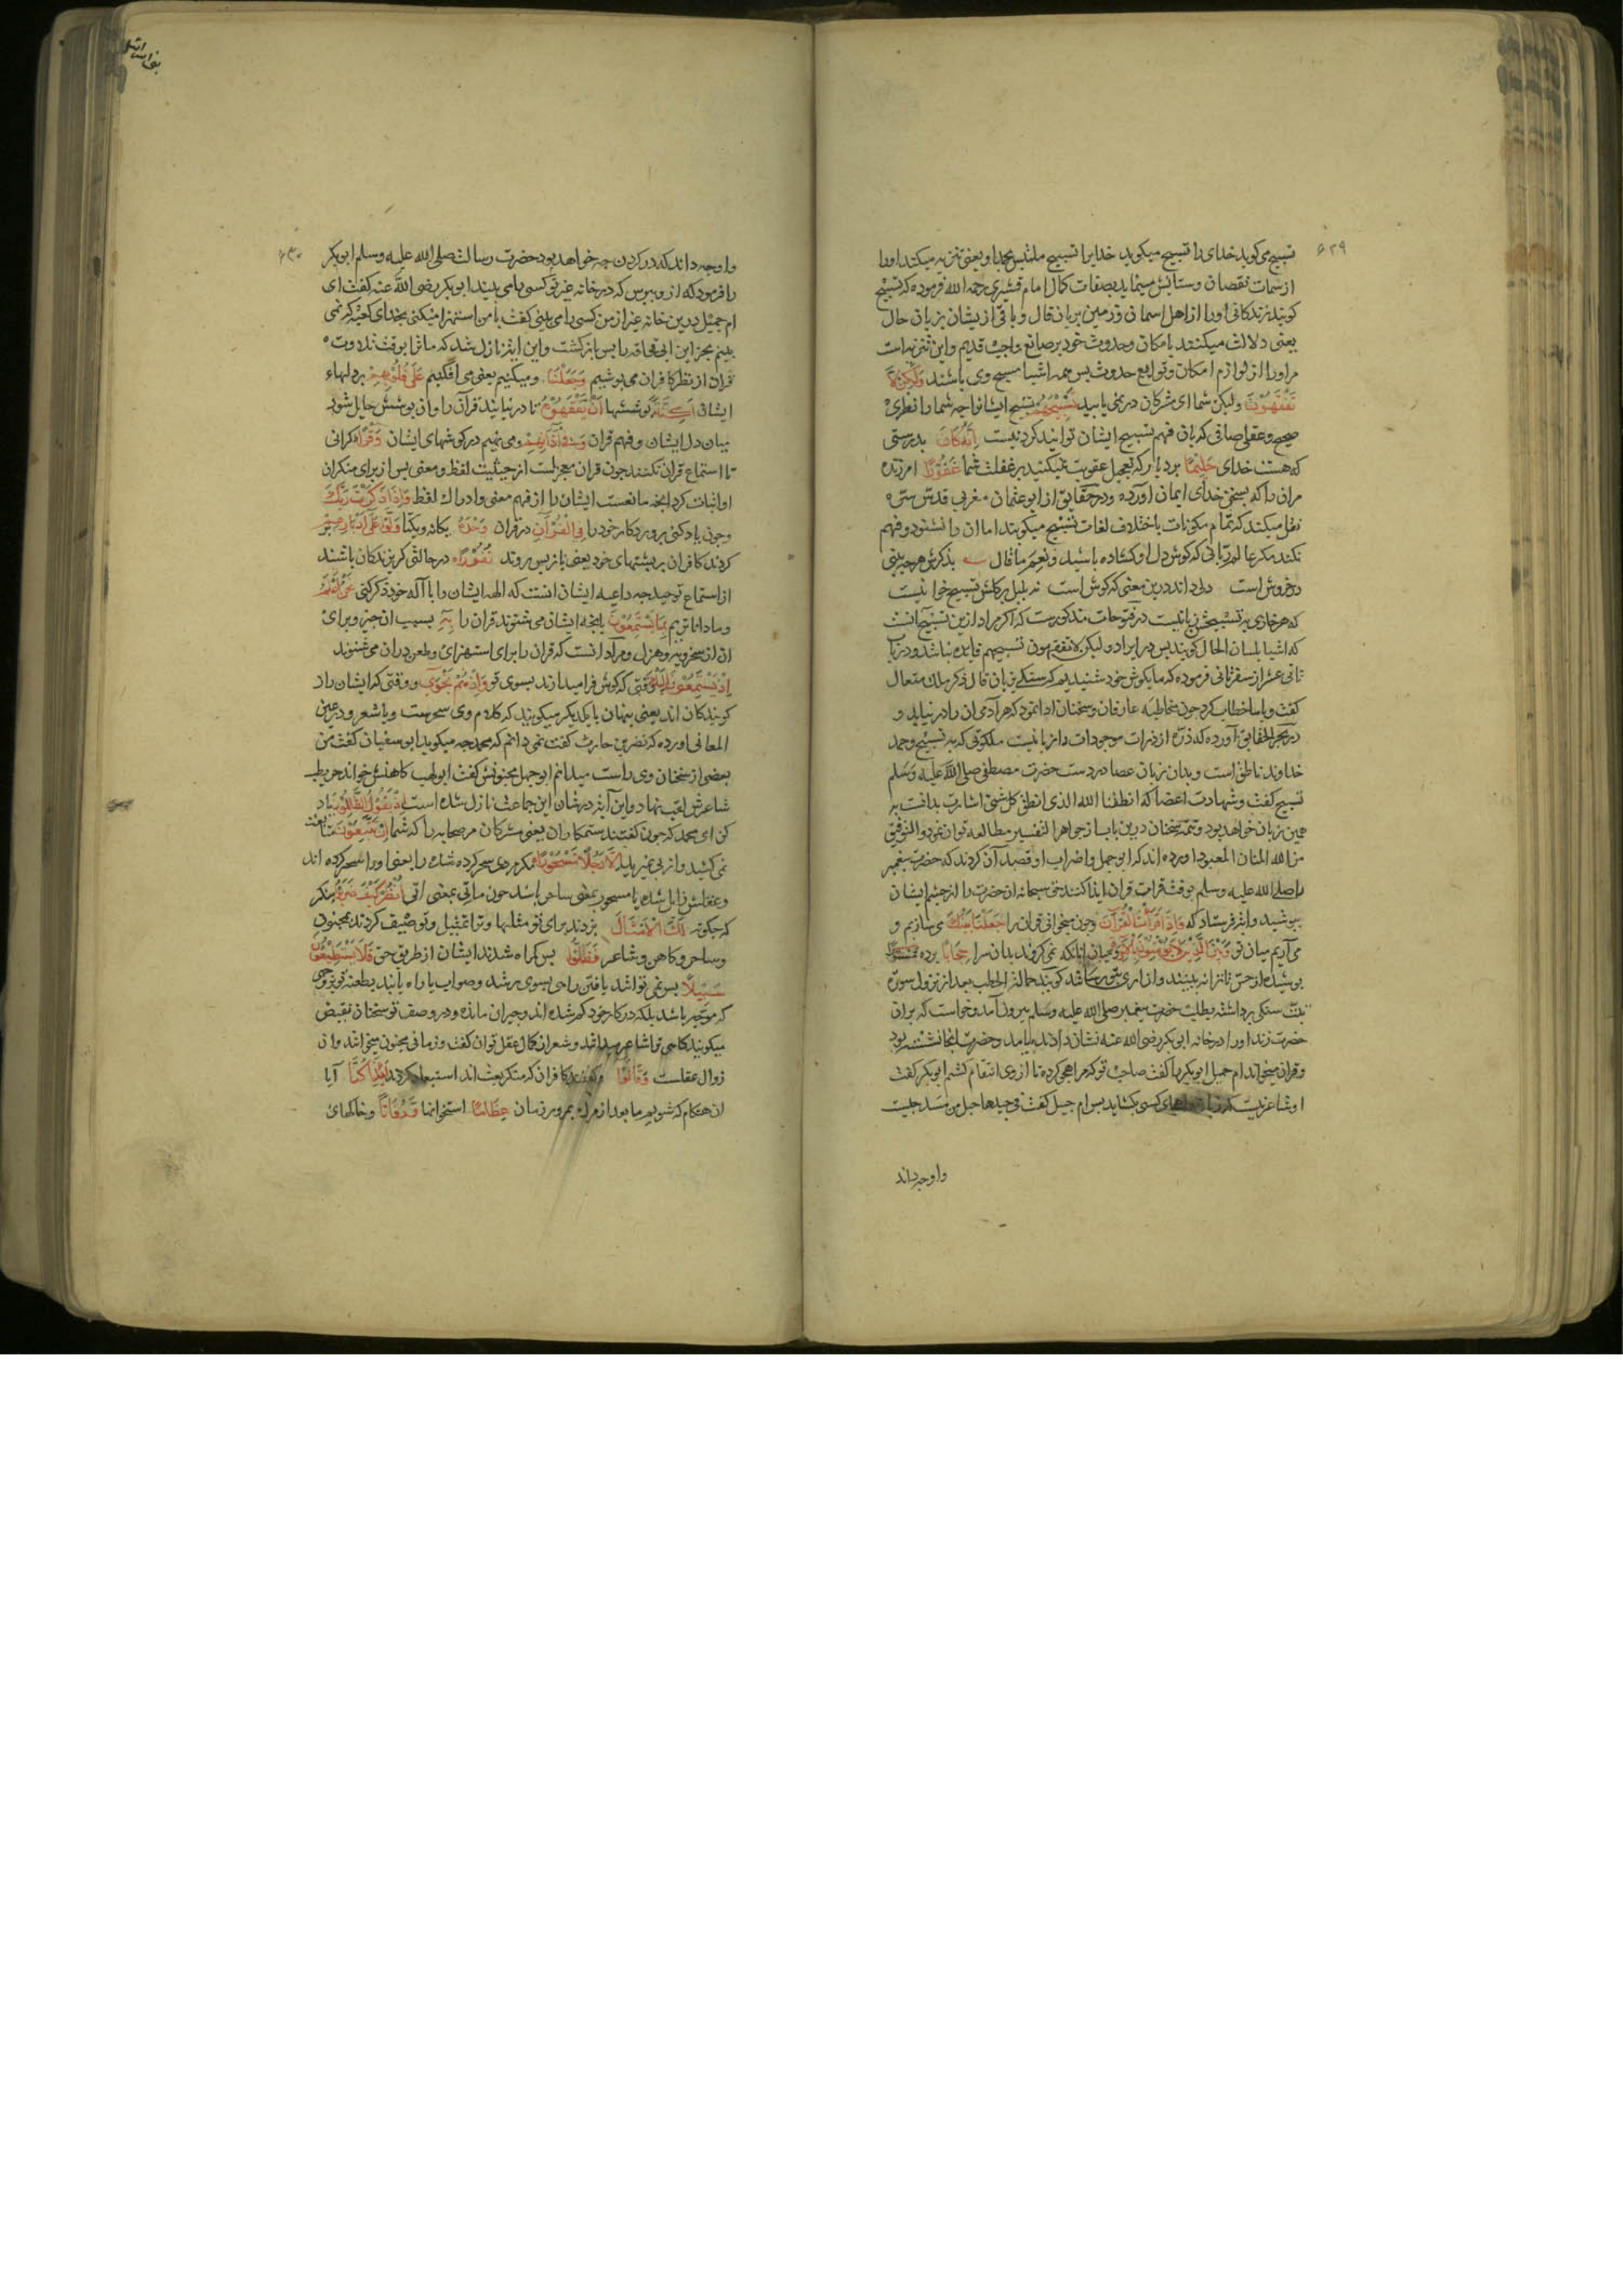 ۶۲۹
تسبیح می کوید خدای را تسبیح میکوید خدایرا تسبیح ملتبس بحمد او یعنی تنزیه میکند او را
از سمات نقصان و ستایش مینماید بصفات کمال امام قشیری رحمه الله فرموده که تسبیح
کویند زندکانی اورا از اهل اسمان و زمین بزبان قال و باقی از یشان بزبان حال
یعنی دلالت میکنند بامکان و حدوث خود بر صانع واجب قدیم و این تنزیه است
مر اورا از لوازم امکان و توابع حدوث بس همه اشیا مسبح وی باشند وَلَكِن لَّا
تَفْقَهُونَ ولیکن شما ای مشرکان در نمی یابید تَسْبِيحَهُمْ تسبیح ایشانرا جه شما را نظری
صحیح و عقلی صافی که بان فهم تسبیح ایشان توانید کرد نیست اِنَّهُ كَانَ بدرستی
که هست خدای حَلِيمًا بردبار که تعجیل عقوبت نمیکند بر غفلت شما غَفُورًا امرزنده
مران را که بسخن خدای ایمان آورده و در حقایق از ابو عثمان مغربی قدس سره
نقل میکند که تمام مکونات باختلاف لغات تسبیح میکویند اما ان را نشنود و فهم
نکند مکر عالم ربانی که کوش دل او کشاده باشد و نعم ما قال بذکرش هرجه بینی
در خروش است دلی داند درین معنی که کوش است نه بلبل بر کلش تسبیح خوانیست
که هر خاری به تسبیحش زبانیست در فتوحات مذکورست که اکر مراد ازین تسبیح آنست
که اشیا بلسان الحال کویند بس در ایراد ولیکن لا تفقهون تسبیحهم فایده نباشد و در باب
ثانی عشر از سفر ثانی فرموده که ما بکوش خود شنیدیم که سنکی بزبان قال ذکر ملک متعال
کفت و با ما خطاب کرد جون مخاطبه عارفان و سخنان ادا نمود که هر آدمی ان را در نیابد و
در بحر الحقایق آورده که ذره از ذرات موجودات را زبانیست ملکوتی که به تسبیح و حمد
خداوند ناطق است و بدان زبان عصا در دست حضرت مصطفی صلی الله علیه وسلم
تسبیح کفت و شهادت اعضا که انطقنا الله الذی انطق کل شئ اشارت بدانست به
همین زبان خواهد بود و تتمه سخنان درین باب از جواهر التفسیر مطالعه توان نمود و التوفیق
من الله المنان المعبود اورده اند که ابو جهل و اضراب او قصد آن کردند که حضرت بیغمبر
را صلی الله علیه وسلم بوقت قرات قران ایذا کنند حق سبحانه ان حضرت را از جشم ایشان
ببوشید و ایه فرستاد که وَإِذَا قَرَأْتَ الْقُرْآنَ و جون میخوانی قران را جَعَلْنَا بَيْنَكَ می سازیم و
می آریم میان تو وَبَيْنَ الَّذِينَ لَا يُؤْمِنُونَ بِالْآخِرَةِ و میان انانکه نمی کروند بدان سرا حِجَابًا برده مَّسْتُورًا
بوشیده از حس تا ترا نه بینند و ازاری بتو نرسانند کویند حمالة الحطب بعد از نزول سوره
تبت سنکی برداشته بطلب حضرت بیغمبر صلی الله علیه وسلم بیرون آمد و خواست که بران
حضرت زند اورا در خانه ابی بکر رضی الله عنه نشان دادند بیامد و حضرت انجا نشسته بود
و قران میخواند ام جمیل ابو بکر را کفت صاحب تو که مرا هجو کرده تا از وی انتقام کشم ابو بکر کفت
او شاعر نیست که زبان کسی بکشاید بس ام جمیل کفت فی جیدها حبل من مسد جیست
واوجه داند
۶۳۰
واوجه داند که در کردن جه خواهد بود حضرت رسالت صلی الله علیه وسلم ابو بکر
را فرمود که ازو ببرس که در خانه غیر تو کسی را می بیند ابو بکر رضی الله عنه کفت ای
ام جمیل درین خانه غیر از من کسی را می بینی کفت با من استهزا میکنی بخدای کعبه که نمی
بینم بجز ابن ابی قحافه را بس باز کشت و این ایه نازل شد که ما ترا بوقت تلاوت
قران از نظر کافران می بوشیم وَجَعَلْنَا و میکنیم یعنی می افکنیم عَلَى قُلُوبِهِمْ بر دلهاء
ایشان أَكِنَّةً بوششها أَن يَفْقَهُوهُ تا در نیابند قرآن را و ان بوشش حایل شود
میان دل ایشان و فهم قران وَفِي آذَانِهِمْ و می نهیم در کوشهای ایشان وَقْرًا کرانی
تا استماع قران نکنند جون قران معجزست از حیثیت لفظ و معنی بس از برای منکران
او اثبات کرد انجه مانعست ایشان را از فهم معنی و ادراک لفظ وَإِذَا ذَكَرْتَ رَبَّكَ
و جون یاد کنی بروردکار خود را فِي الْقُرْآنِ در قران وَحْدَهُ یکانه و یکتا وَلَّوْا عَلَى أَدْبَارِهِمْ
کردند کافران بر بشتهای خود یعنی باز بس روند نُفُورًا در حالتی کریزندکان باشند
از استماع توحید جه داعیه ایشان انست که الهه ایشان را با آله خود ذکر کنی نَّحْنُ أَعْلَمُ
و ما داناتریم بِمَا يَسْتَمِعُونَ بانجه ایشان می شنوند قران را بِهِ بسبب ان جیز و برای
ان از سخریه و هزل و مراد انست که قران را برای استهزای و طعن دران می شنوند
إِذْ يَسْتَمِعُونَ إِلَيْكَ وقتی که کوش فرا میدارند بسوی تو وَإِذْ هُمْ نَجْوَى و وقتی که ایشان راز
کویندکان اند یعنی بنهان با یکدیکر میکویند که کلام وی سحرست و یا شعر و در عین
المعانی اورده که نضر بن حارث کفت نمی دانم که محمد جه میکوید ابو سفیان کفت من
بعضی از سخنان وی راست میدانم ابو جهل مجنونش کفت ابو لهب کاهنش خواند حویطب
شاعرش لقب نهاد و این آیه در شان این جماعت نازل شده است إِذْ يَقُولُ الظَّالِمُونَ یاد
کن ای محمد که جون کفتند ستمکاران یعنی مشرکان مر صحابه را که شما إِن تَتَّبِعُونَ متابعت
نمی کنید و از بی نمیروید إِلَّا رَجُلًا مَّسْحُورًا مکر مردی سحر کرده شده را یعنی اورا سحر کرده اند
و عقلش زایل شده یا مسحور بمعنی ساحر باشد جون ماتی بمعنی اتی انظُرْ كَيْفَ ضَرَبُوا بنکر
که جکونه لَكَ الْأَمْثَالَ بزدند برای تو مثلها و ترا تمثیل و توصیف کردند بمجنون
و ساحر و کاهن و شاعر فَضَلُّوا بس کمراه شدند ایشان از طریق حق فَلَا يَسْتَطِيعُونَ
سَبِيلًا بس نمی توانند یافتن راهی بسوی رشد و صواب یا راه یابند بطعنه تو بر وجهی
که موجه باشد بلکه در کار خود کم شده اند و حیران مانده و در وصف تو سخنان نقیض
میکویند کاهی ترا شاعر میدانند و شعر از کمال عقل توان کفت و زمانی مجنون میخوانند و ان
زوال عقلست وَقَالُوا و کفتند کافران که منکر بعث اند استبعاد کردند أَإِذَا كُنَّا آیا
ان هنکام که شویم ما بعد از مرک بمرور زمان عِظَامًا استخوانها وَرُفَاتًا و خاکهای